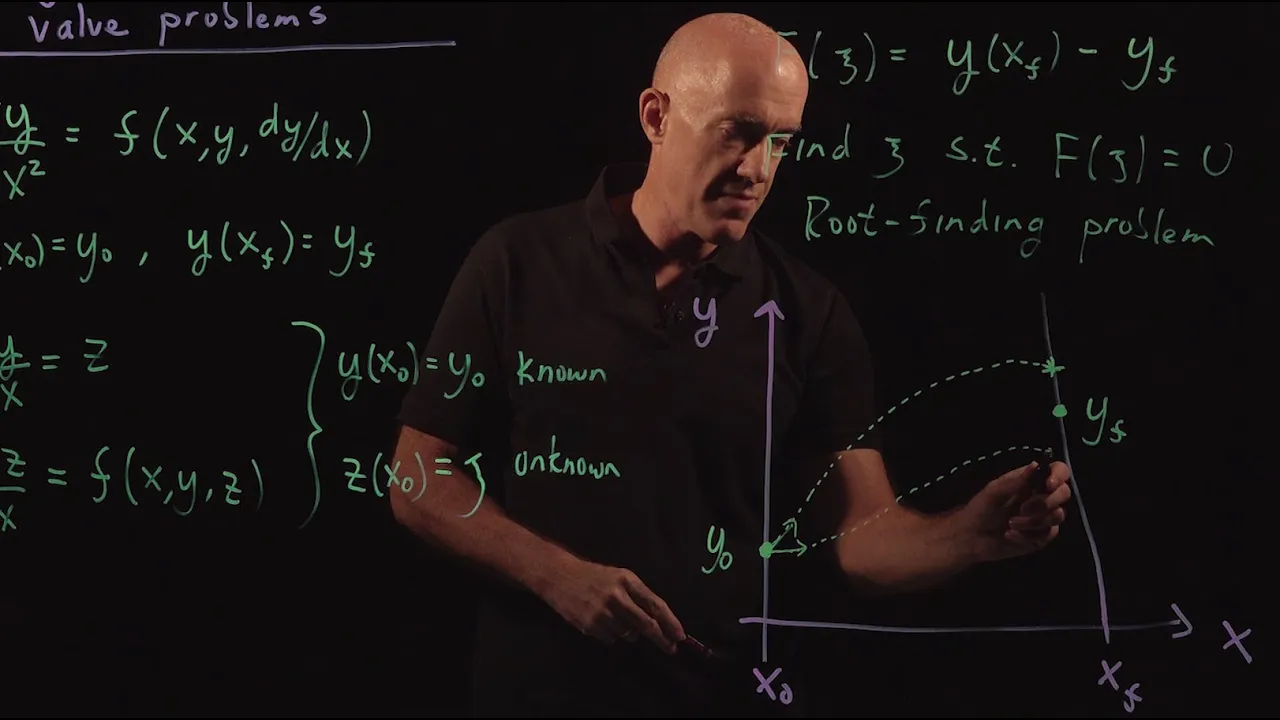 value problems
y/x² = f(x,y, dy/dx)
(x₀)=y₀ , y(x_f)= y_f
y/x = z
z/x = f(x,y,z)
y(x₀)=y₀ known
z(x₀)= ʒ unknown
F(ʒ) = y(x_f) - y_f
Find ʒ s.t. F(ʒ) = 0
Root-finding problem
y
y_f
y₀
x
x₀
x_f